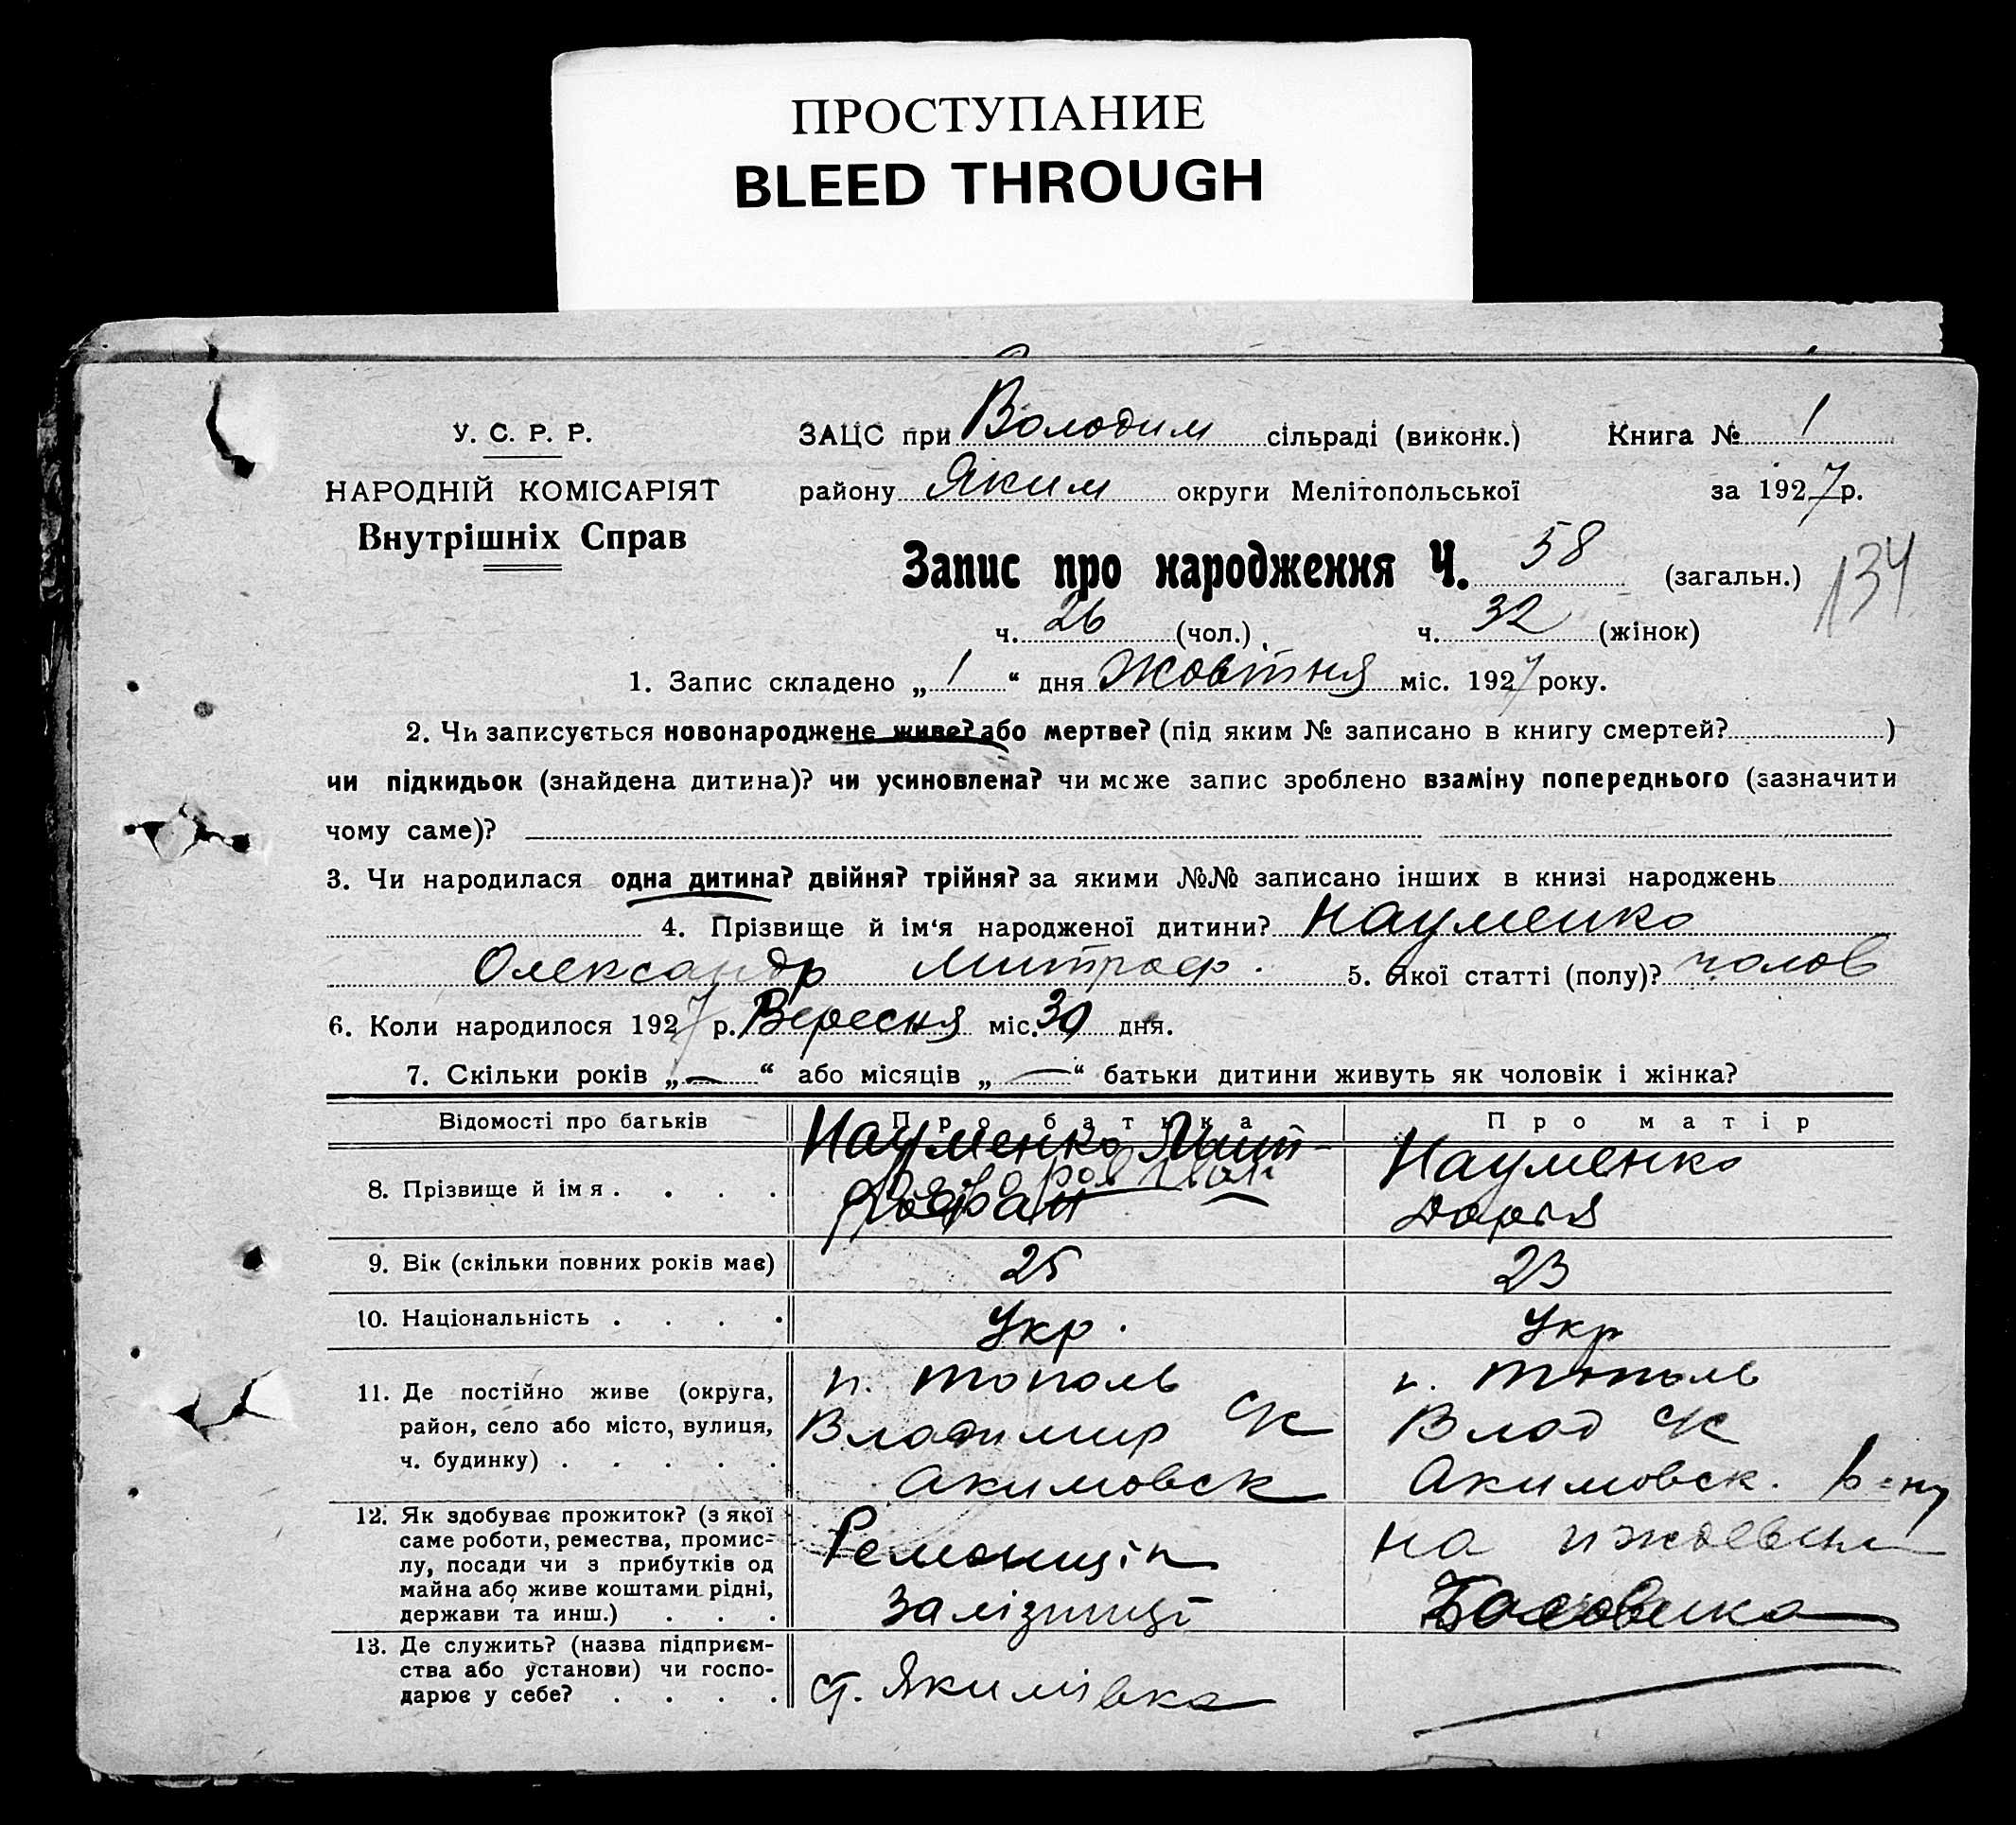 ПРОСТУПАНИЕ
BLEED THROUGH
У. С. Р. Р.
НАРОДНІЙ КОМІСАРІЯТ
Внутрішніх Справ
ЗАЦС при Володим сільраді (виконк.) Книга № 1
району Яким округи Мелітопольської за 1927 р.
Запис про народження Ч. 58 (загальн.) 134
ч. 26 (чол.), ч. 32 (жінок)
1. Запис складено „ 1 “ дня Жовтня міс. 1927 року.
2. Чи записується новонароджене живе? або мертве? (під яким № записано в книгу смертей? )
чи підкидьок (знайдена дитина)? чи усиновлена? чи може запис зроблено взаміну попереднього (зазначити
чому саме)?
3. Чи народилася одна дитина? двійня? трійня? за якими №№ записано інших в книзі народжень
4. Прізвище й ім‘я народженої дитини? Науменко
Олександр Митроф. 5. Якої статті (полу)? чолов
6. Коли народилося 1927 р. Вересня міс. 30 дня.
7. Скільки років „ — “ або місяців „ — “ батьки дитини живуть як чоловік і жінка?
Відомості про батьків Про батька Про матір
8. Прізвище й ім я . . . . Науменко Мит-
рофан
Науменко
Дарія
9. Вік (скільки повних років має) 25 23
10. Національність . . . . Укр. Укр
11. Де постійно живе (округа,
район, село або місто, вулиця,
ч. будинку) . . . . .
п. тополь
Владимир
Акимовск
тополь
Влад
Акимовск.
12. Як здобуває прожиток? (з якої
саме роботи, ремества, промис-
лу, посади чи з прибутків од
майна або живе коштами рідні,
держави та инш.) . . .
Ремонщік
Залізниці
на
13. Де служить? (назва підприєм-
ства або установи) чи госпо-
дарює у себе? . . . .
ст. Якимівка